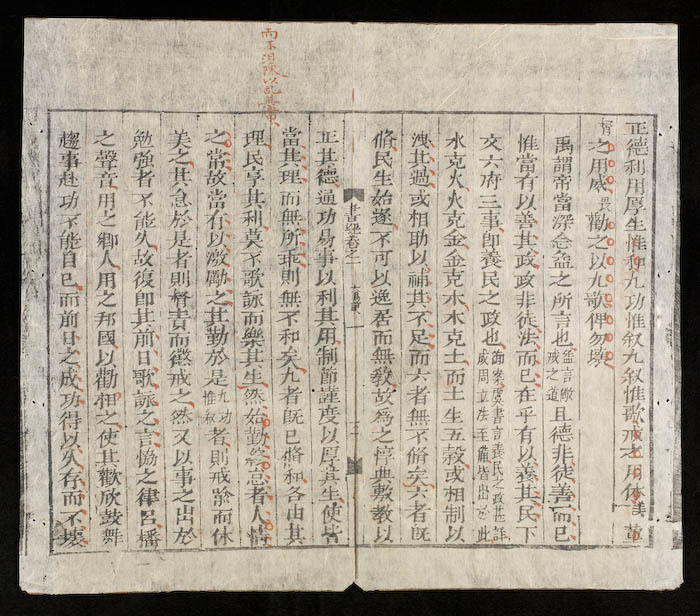 正德利用厚生惟和九功惟叙九叙惟歌戒之用休美董
督之用威畏勸之以九歌俾勿壞
禹謂帝當深念益之所言也益言儆戒之道且德非徒善而已
惟當有以善其政政非徒法而已在乎有以養其民下
文六府三事即養民之政也御案虞書言養民之政甚詳成周立法至備皆出於此
水克火火克金金克木木克土而土生五穀或相制以
洩其過或相助以補其不足而六者無不脩矣六者既
脩民生始遂不可以逸居而無教故為之惇典敷教以
書經卷之一 大禹謨
正其德通功易事以利其用制節謹度以厚其生使皆
當其理而無所乖則無不和矣九者既已脩和各由其
理民享其利莫不歌詠而樂其生然始勤終怠者人情
之常故當有以激勵之其勤於是九功惟叙者則戒喻而休
美之其怠於是者則督責而懲戒之然又以事之出於
勉強者不能久故復即其前日歌詠之言恊之律呂播
之聲音用之鄉人用之邦國以勸相之使其歡欣鼓舞
趨事赴功不能自已而前日之成功得以久存而不壞
而不汨陳以乱其常